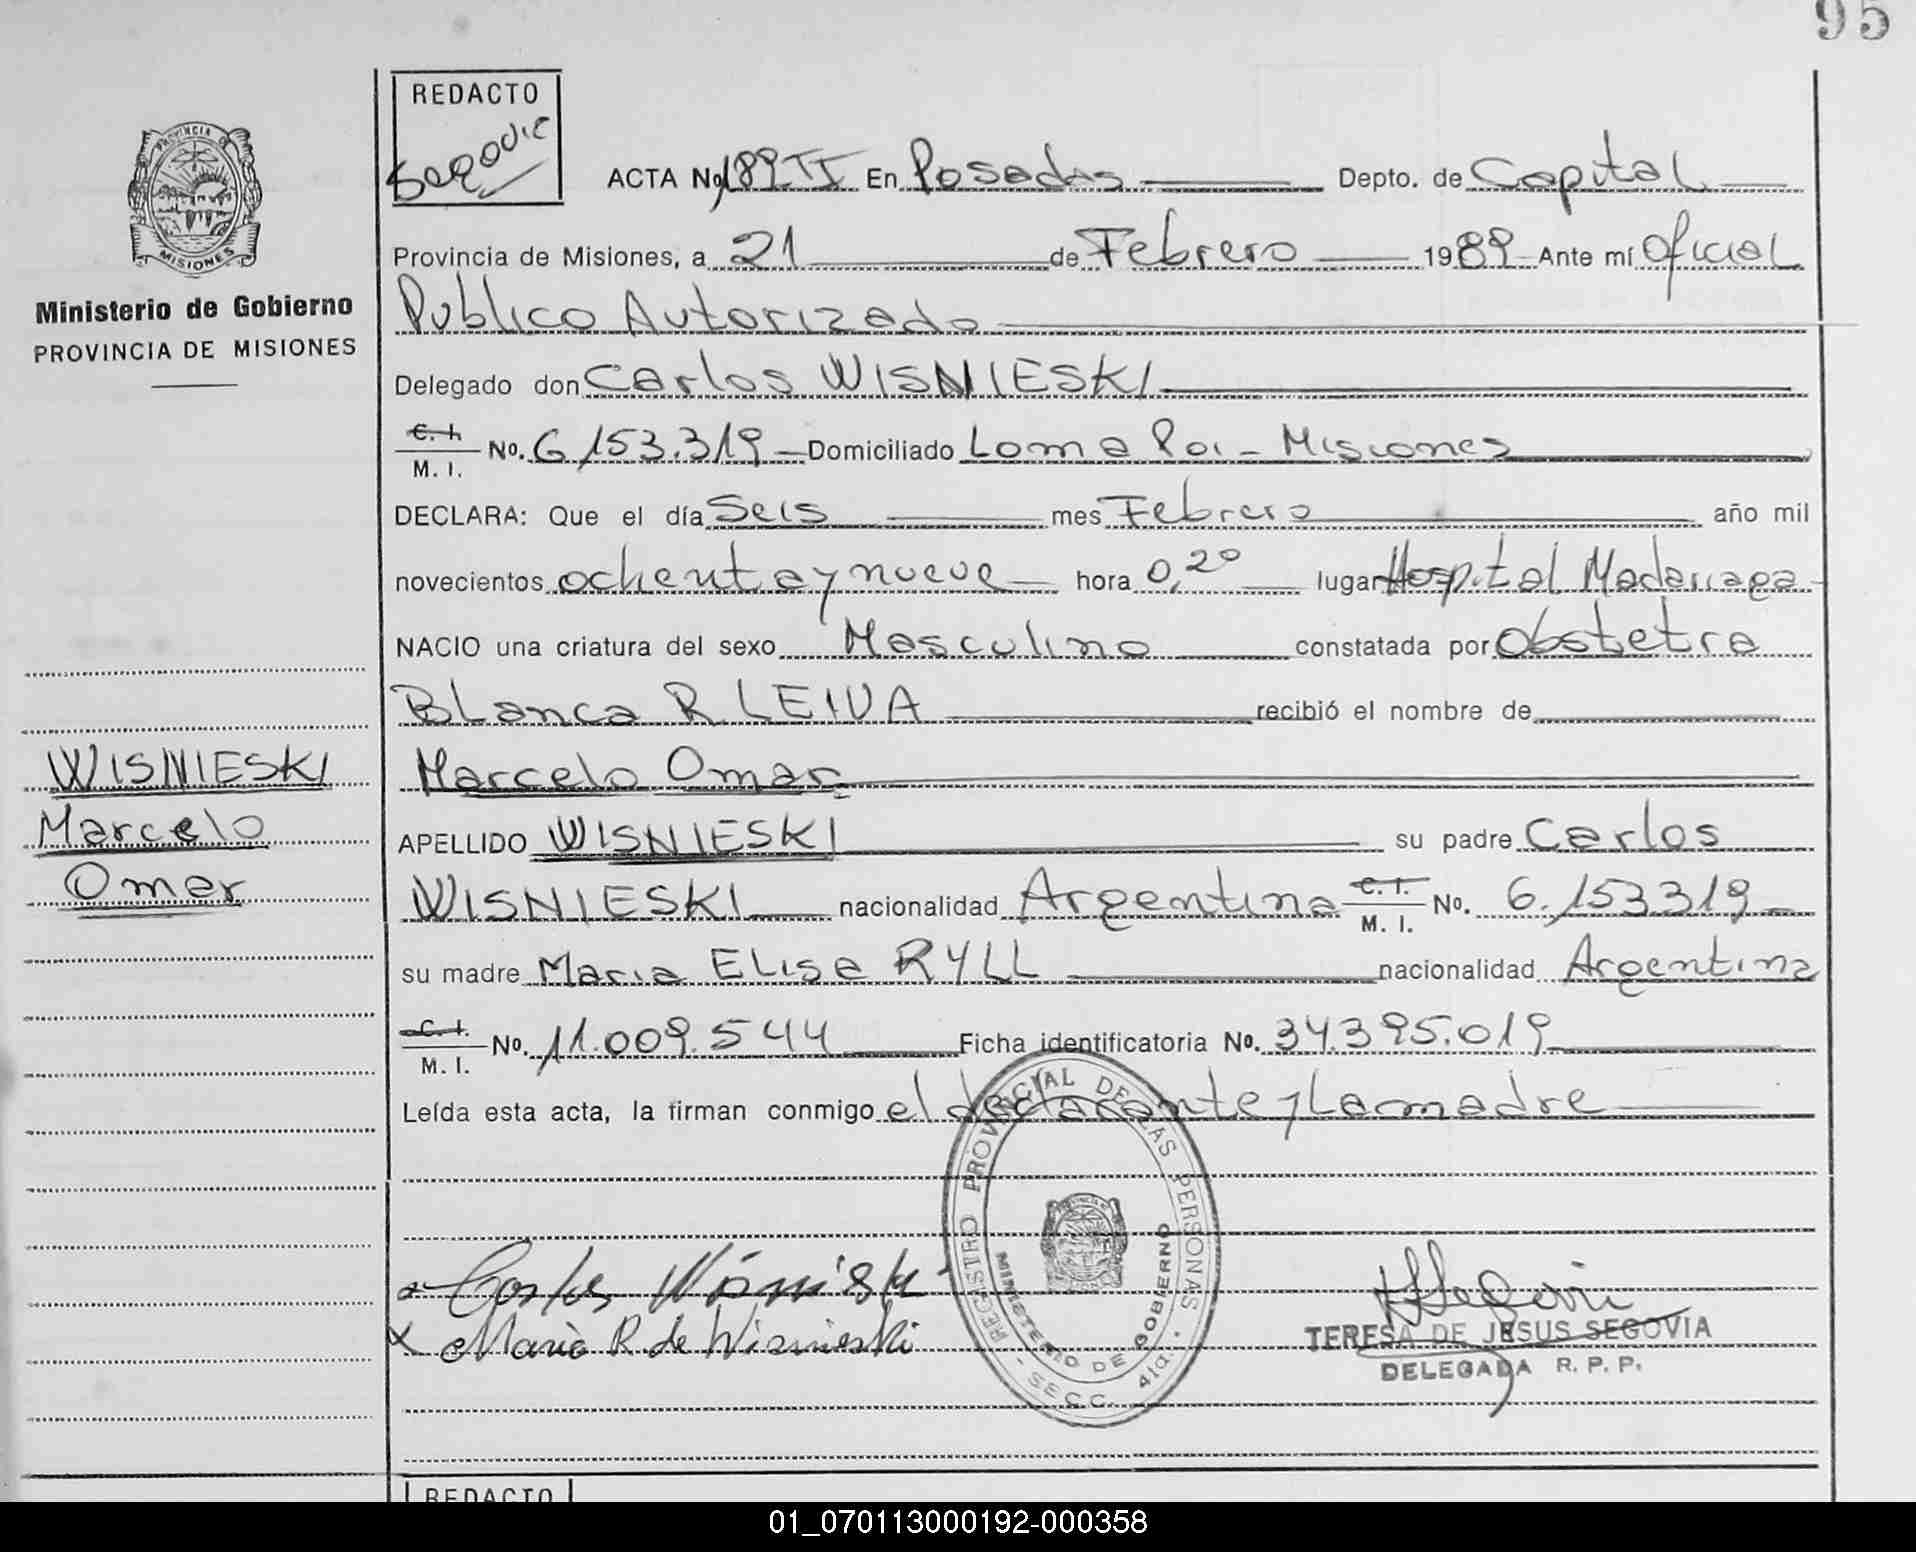 95
REDACTO
Segovia
ACTA No. 189 II En Posadas Depto. de Capital
Provincia de Misiones, a 21 de Febrero 1989 Ante mí Oficial
Publico Autorizado
Delegado don Carlos WISNIESKI
C. I.
M. I. No. 6.153.319 Domiciliado Loma Poi - Misiones
DECLARA: Que el día Seis mes Febrero año mil
novecientos ochenta y nueve hora 0,20 lugar Hospital Madariaga
NACIO una criatura del sexo Masculino constatada por Obstetra
Blanca R LEIVA recibió el nombre de
Marcelo Omar
APELLIDO WISNIESKI su padre Carlos
WISNIESKI nacionalidad Argentina C. I. M. I. No. 6.153.319
su madre Maria Elisa RYLL nacionalidad Argentina
C. I.
M. I. No. 11.009.544 Ficha identificatoria No. 34.395.019
Leída esta acta, la firman conmigo el declarante y La madre
PROVINCIA DE
MISIONES
Ministerio de Gobierno
PROVINCIA DE MISIONES
WISNIESKI
Marcelo
Omar
REGISTRO PROVINCIAL DE LAS PERSONAS
MINISTERIO DE GOBIERNO
- SECC. 41a. -
Carlos Wisnieski
Maria R de Wisnieski
TERESA DE JESUS SEGOVIA
DELEGADA R. P. P.
REDACTO
01_070113000192-000358